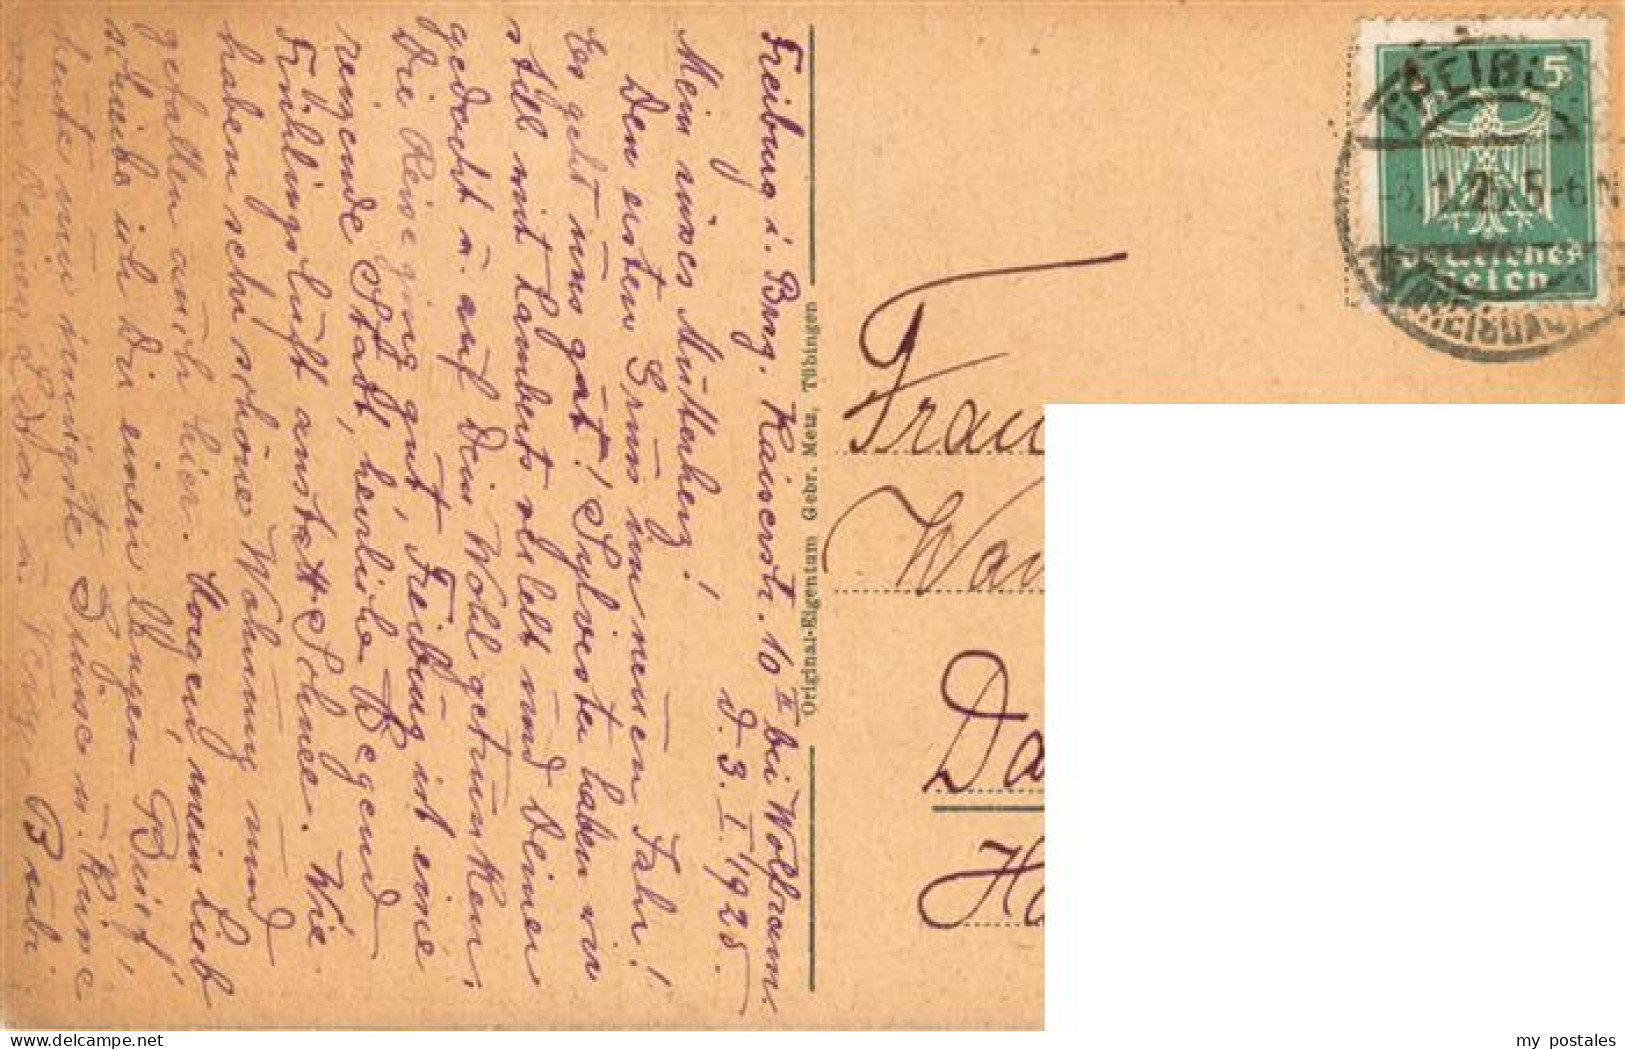 Freiburg i. Brsg. Kaiserstr. 10 II bei Wolfram.
d. 3. I. 1925.
Mein süsses Mutterherz!
Den ersten Gruss im neuen Jahr!
Es geht uns gut! Sylvester haben wir
still mit Lamberts verlebt und Deiner
gedacht u. auf Dein Wohl getrunken.
Die Reise ging gut, Freiburg ist eine
reizende Stadt, herrliche Gegend
Frühlingsluft anstatt Schnee. Wir
haben sehr schöne Wohnung und
gefallen auch hier. Morgen, mein Lieb
schreibe ich Dir einen langen Brief,
heute nur innigste Grüsse u. Küsse
von Deiner u. Bubi.
Original-Eigentum Gebr. Metz, Tübingen
Frau
Da
Ha
5
Deutsches
Reich
FREIBU
-3.1.25.5-6N
(BREISGAU)
my postales